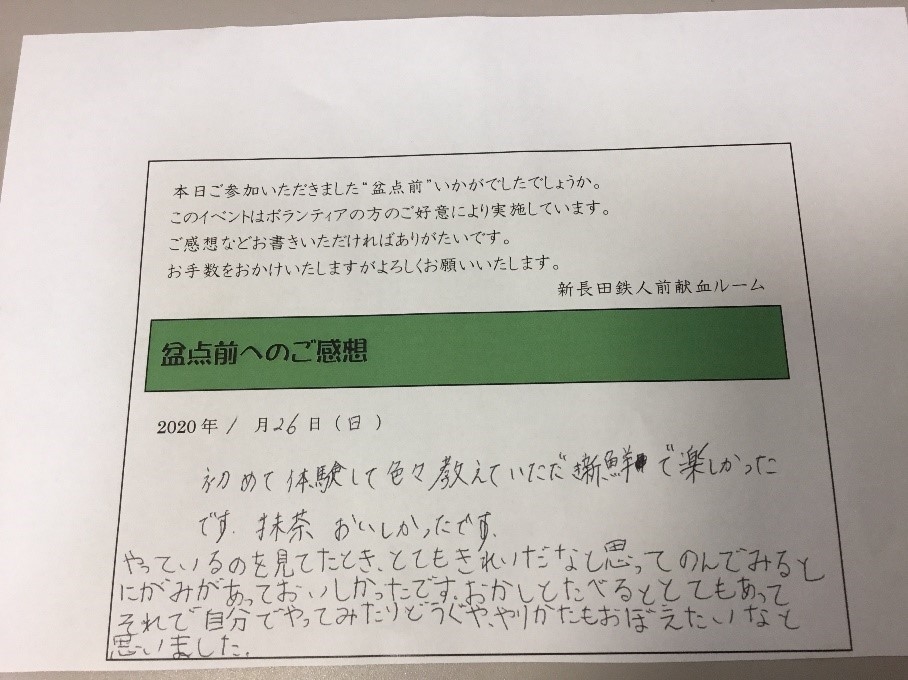 本日ご参加いただきました“盆点前”いかがでしたでしょうか。
このイベントはボランティアの方のご好意により実施しています。
ご感想などお書きいただければありがたいです。
お手数をおかけいたしますがよろしくお願いいたします。
新長田鉄人前献血ルーム
盆点前へのご感想
2020年 1月26日(日)
初めて体験して色々教えていただき新鮮で楽しかった
です. 抹茶 おいしかったです.
やっているのを見てたとき、とてもきれいだなと思ってのんでみると
にがみがあっておいしかったです.おかしとたべるととてもあって
それで自分でやってみたりどうぐや、やりかたもおぼえたいなと
思いました.